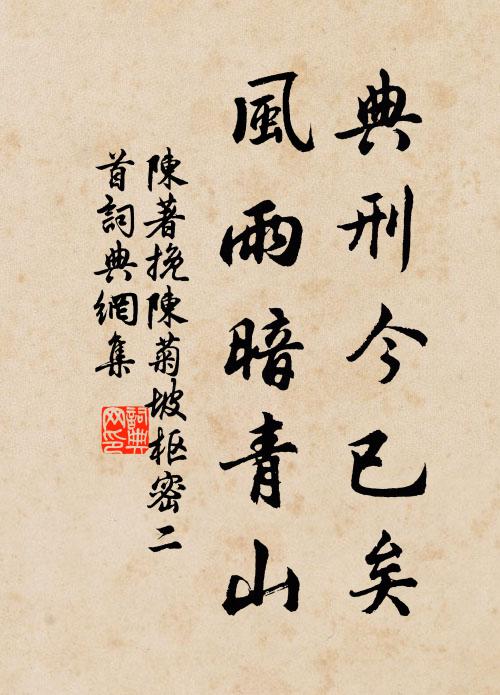 典刑今已矣
風雨暗青山
陳著挽陳菊坡枢密二
首詞典網集
詞典
网印